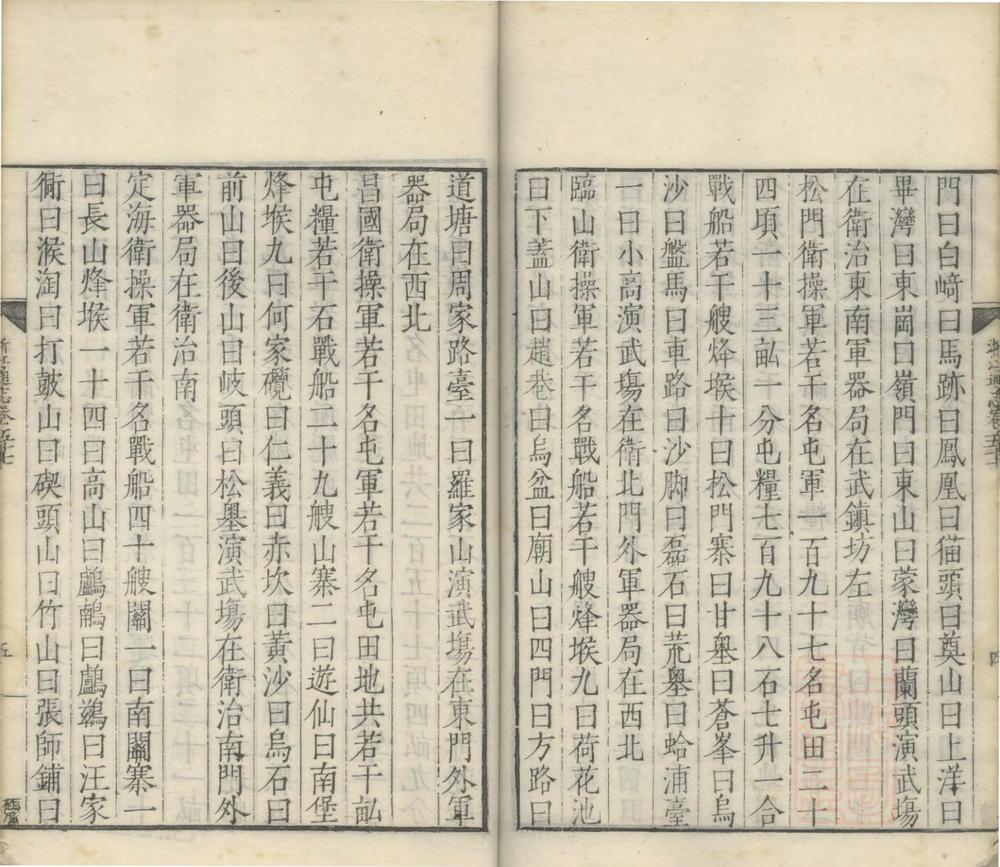 門曰白﨑曰馬跡曰鳳凰曰猫頭曰奠山曰上洋曰
畢灣曰東崗曰嶺門曰東山曰蒙灣曰蘭頭演武塲
在衛治東南軍器局在武鎮坊左
松門衛操軍若干名屯軍一百九十七名屯田二十
四頃一十三畆十分屯糧七百九十八石七升一合
戰船若干艘烽堠十曰松門寨曰甘嶴曰蒼峯曰烏
沙曰盤馬曰車路曰沙脚曰磊石曰荒嶴曰蛤浦臺
一曰小高演武塲在衛北門外軍器局在西北
臨山衛操軍若干名戰船若干艘烽堠九曰荷花池
曰下蓋山曰趙巷曰烏盆曰廟山曰四門曰方路曰
道塘曰周家路臺一曰羅家山演武塲在東門外軍
器局在西北
昌國衛操軍若干名屯軍若干名屯田地共若干畆
屯糧若干石戰船二十九艘山寨二曰遊仙曰南堡
烽堠九曰何家䌫曰仁義曰赤坎曰黃沙曰烏石曰
前山曰後山曰岐頭曰松嶴演武塲在衛治南門外
軍器局在衛治南
定海衛操軍若干名戰船四十艘關一曰南關寨一
曰長山烽堠一十四曰高山曰鸕鶄曰鸕鷀曰汪家
衕曰㺅淘曰打皷山曰碶頭山曰竹山曰張師鋪曰
浙江通志卷五十七
五
四